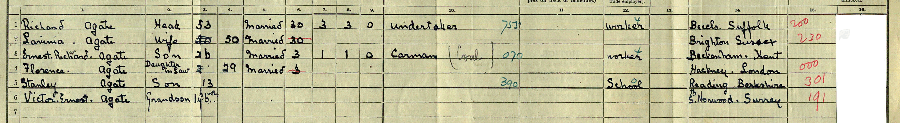 1 Richard Agate Head 53 Married 30 3 3 0 Undertaker 753 Worker Beccles Suffolk 200
2 Lavinia Agate Wife 50 50 Married 30 Brighton Sussex 230
3 Ernest Richard Agate Son 26 Married 3 1 1 0 Carman 070 Worker Beckenham Kent
4 Florence Agate Daughter in Law 29 Married 3 Hackney London 000
5 Stanley Agate Son 13 390 School Reading Berkshire 301
6 Victor Ernest Agate Grandson S. Norwood Surrey 191
7